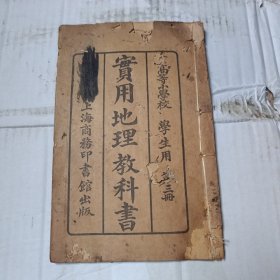 高等小學校 學生用 第三冊
實用地理教科書
上海商務印書館出版